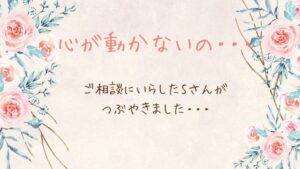 心が動かないの・・・
ご相談にいらしたSさんが
つぶやきました・・・